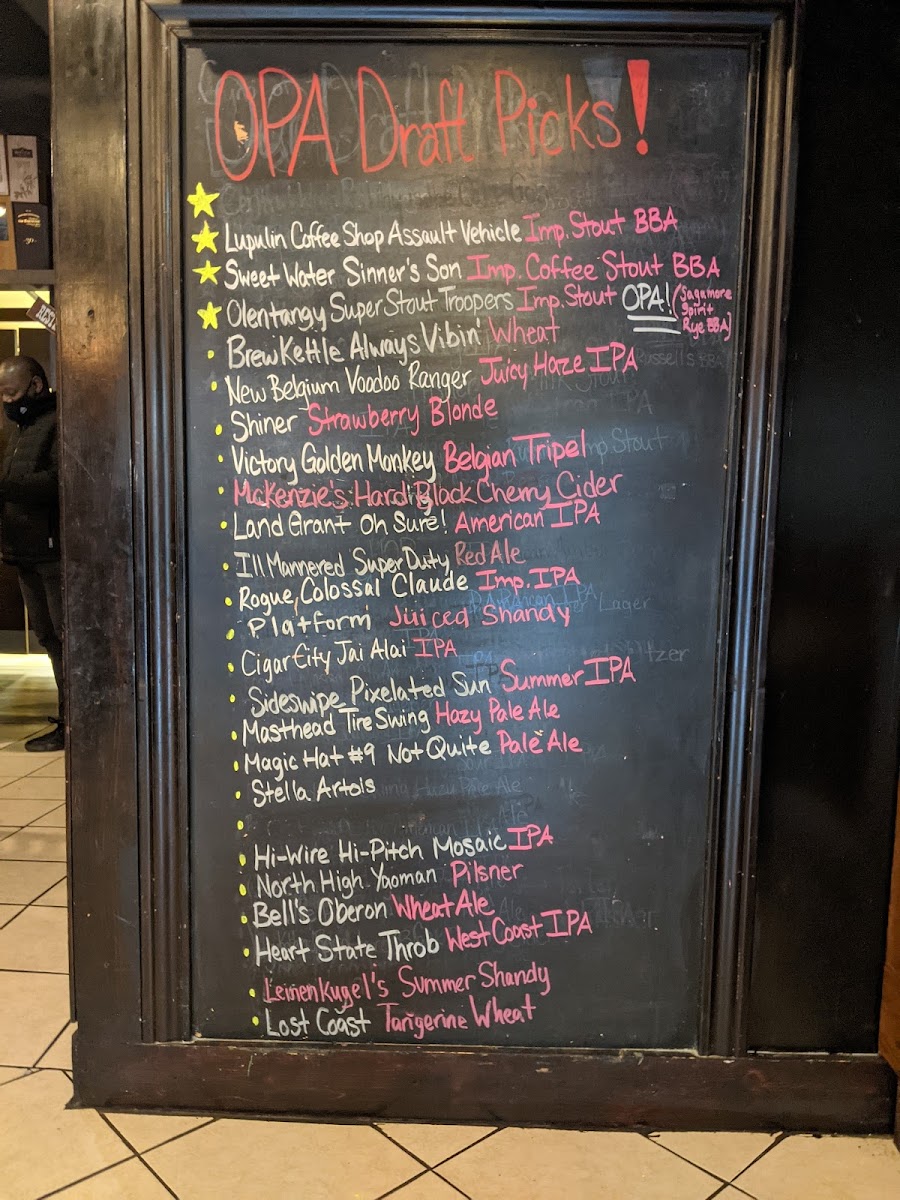 OPA Draft Picks!
Lupulin Coffee Shop Assault Vehicle Imp. Stout BBA
Sweet Water Sinner's Son Imp. Coffee Stout BBA
Olentangy Super Stout Troopers Imp. Stout OPA! (Sagamore Spirit Rye BBA)
BrewKettle Always Vibin' Wheat
New Belgium Voodoo Ranger Juicy Haze IPA
Shiner Strawberry Blonde
Victory Golden Monkey Belgian Tripel
McKenzie's Hard Black Cherry Cider
Land Grant Oh Sure! American IPA
Ill Mannered Super Duty Red Ale
Rogue, Colossal Claude Imp. IPA
Platform Juiced Shandy
Cigar City Jai Alai IPA
Sideswipe Pixelated Sun Summer IPA
Masthead Tire Swing Hazy Pale Ale
Magic Hat #9 Not Quite Pale Ale
Stella Artois
Hi-Wire Hi-Pitch Mosaic IPA
North High Yaoman Pilsner
Bell's Oberon Wheat Ale
Heart State Throb West Coast IPA
Leinenkugel's Summer Shandy
Lost Coast Tangerine Wheat